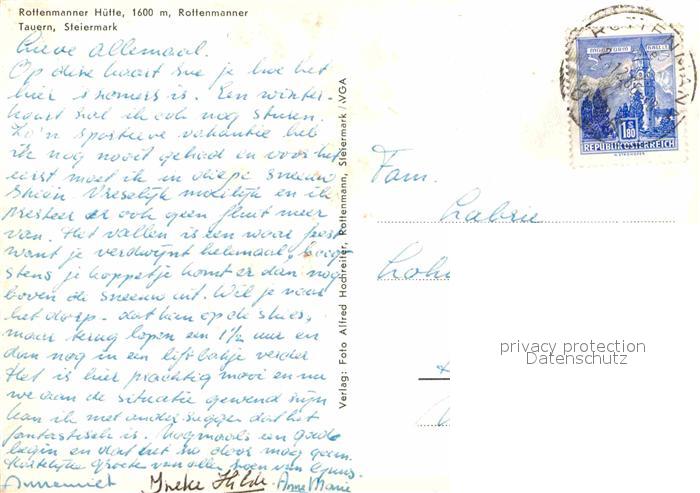 Rottenmanner Hütte, 1600 m, Rottenmanner
Tauern, Steiermark
Lieve allemaal.
Op deze kaart zie je hoe het
hier 's zomers is. Een winter-
kaart zal ik ook nog sturen.
Zo'n sportieve vakantie heb
ik nog nooit gehad en voor het
eerst moet ik in diepe sneeuw
skiën. Vreselijk moeilijk en ik
presteer er ook geen fluit meer
van. Het vallen is een waar feest
want je verdwijnt helemaal, hoog-
stens je koppetje komt er dan nog
boven de sneeuw uit. Wil je naar
het dorp - dat kan op de skies,
maar terug lopen een 1½ uur en
dan nog in een liftbakje verder
Het is hier prachtig mooi en nu
we aan de situatie gewend zijn
kan ik met ander zeggen dat het
fantastisch is. Nogmaals een goede
begin en dat het zo door mag gaan.
Hartelijke groeten van allen, zoen van
Annemiet Ineke Hilde. Anne Marie
Verlag: Foto Alfred Hochreiter, Rottenmann, Steiermark /VGA
1.80
REPUBLIK ÖSTERREICH
Fam.
Labrie
privacy protection
Datenschutz